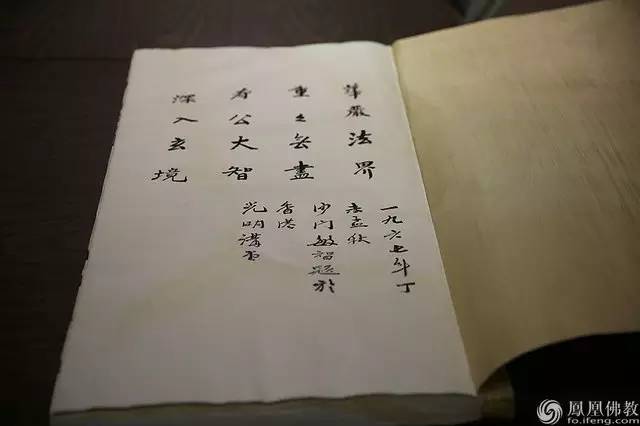 華嚴法界
重々無盡
寿公大智
深入玄境
一九六七年丁
未孟秋
沙门敏智題於
香港
光明講堂
鳳凰佛教
fo.ifeng.com